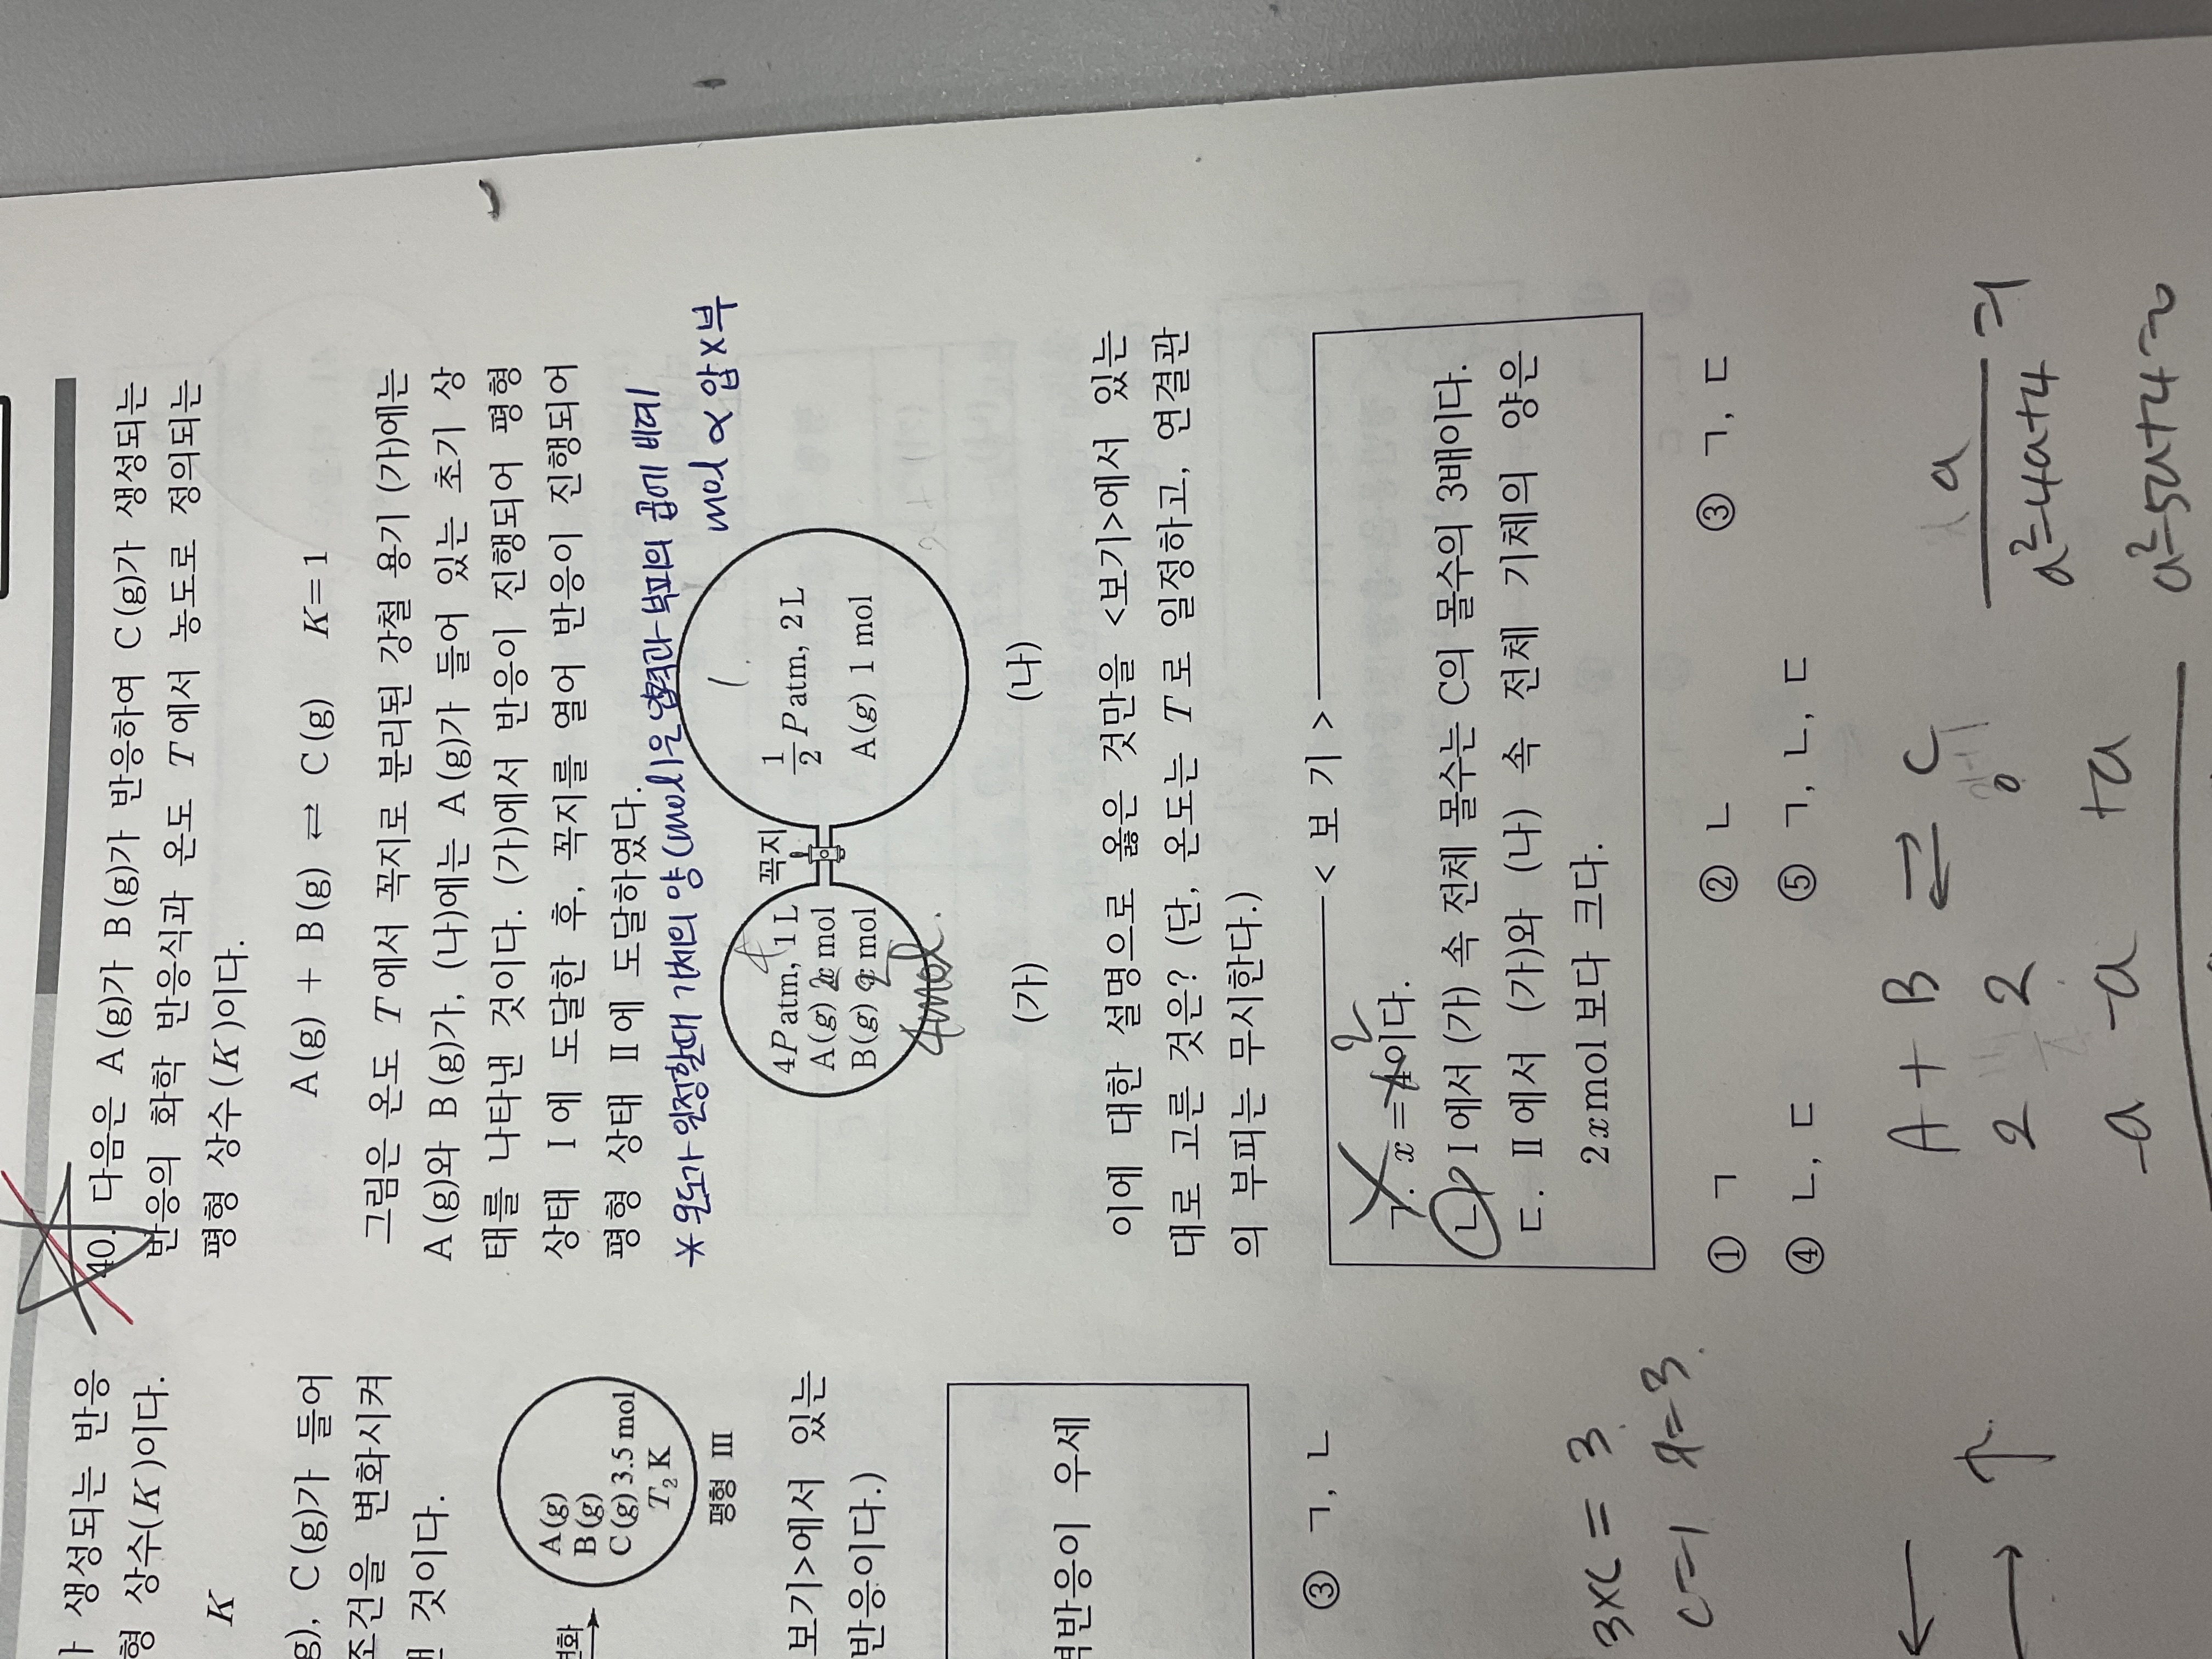 40. 다음은 A(g)가 B(g)가 반응하여 C(g)가 생성되는
반응의 화학 반응식과 온도 T에서 농도로 정의되는
평형 상수(K)이다.
A(g) + B(g) ⇌ C(g) K=1
그림은 온도 T에서 꼭지로 분리된 강철 용기 (가)에는
A(g)와 B(g)가, (나)에는 A(g)가 들어 있는 초기 상
태를 나타낸 것이다. (가)에서 반응이 진행되어 평형
상태 I에 도달한 후, 꼭지를 열어 반응이 진행되어
평형 상태 II에 도달하였다.
* 온도가 일정할대 기체의 양(mol)은 압력과 부피의 곱에 비례
mol ∝ 압×부
꼭지
4P atm, 1 L
4
A(g) x mol
2
B(g) x mol
2
4mol
(가)
1/2 P atm, 2 L
A(g) 1 mol
(나)
이에 대한 설명으로 옳은 것만을 <보기>에서 있는
대로 고른 것은? (단, 온도는 T로 일정하고, 연결관
의 부피는 무시한다.)
< 보 기 >
ㄱ. x=4이다.
2
ㄴ. I에서 (가) 속 전체 몰수는 C의 몰수의 3배이다.
ㄷ. II에서 (가)와 (나) 속 전체 기체의 양은
2x mol보다 크다.
① ㄱ ② ㄴ ③ ㄱ, ㄷ
④ ㄴ, ㄷ ⑤ ㄱ, ㄴ, ㄷ
A + B ⇌ C
2 2 0
-a -a +a
a
a²-4a+4 =1
a²-5a+4=0
가 생성되는 반응
형 상수(K)이다.
K
g), C(g)가 들어
조건을 변화시켜
것이다.
변화
A(g)
B(g)
C(g) 3.5 mol
T₂ K
평형 III
보기>에서 있는
반응이다.)
역반응이 우세
③ ㄱ, ㄴ